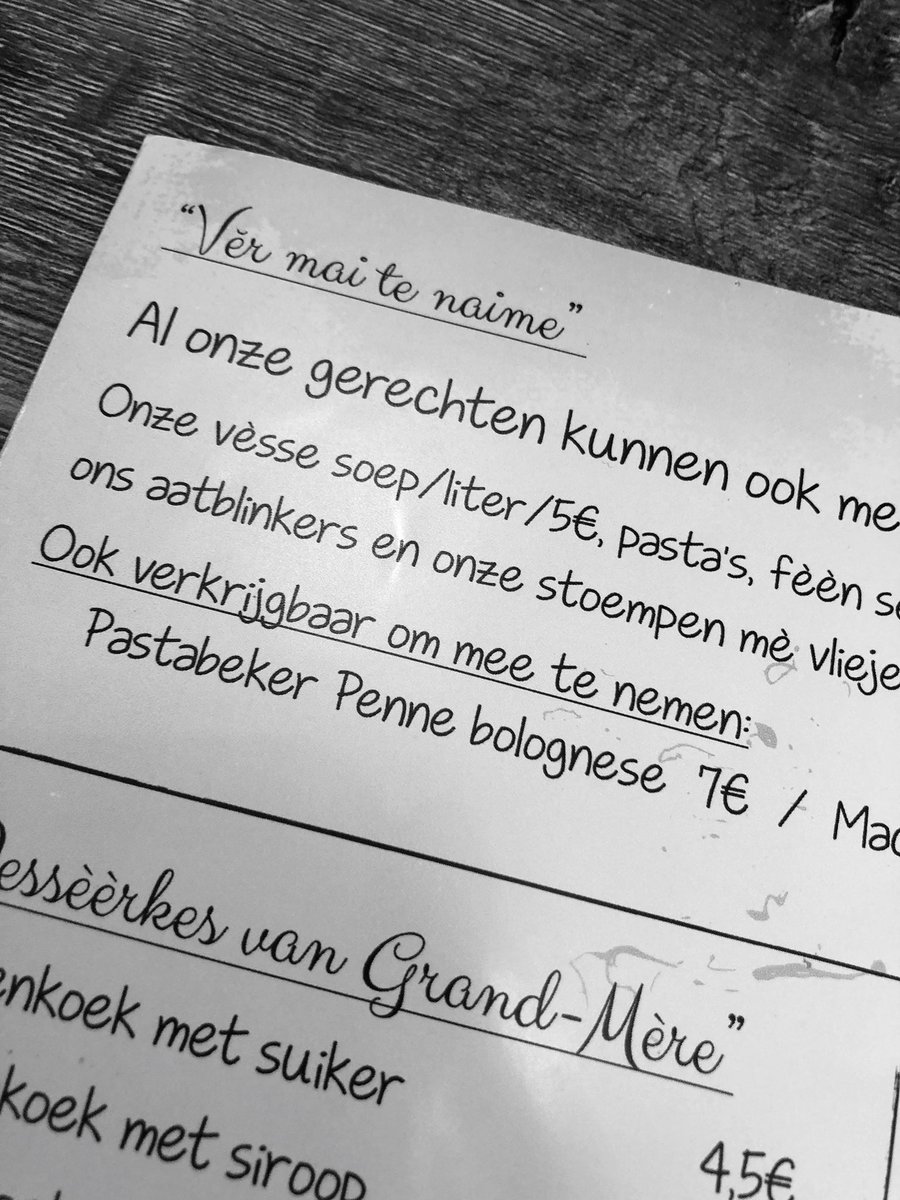 “Vĕr mai te naime”
Al onze gerechten kunnen ook me
Onze vèsse soep/liter/5€, pasta's, fèèn s
ons aatblinkers en onze stoempen mè vlieje
Ook verkrijgbaar om mee te nemen:
Pastabeker Penne bolognese 7€ / Mac
essèèrkes van Grand-Mère”
enkoek met suiker
koek met siroop
4,5€